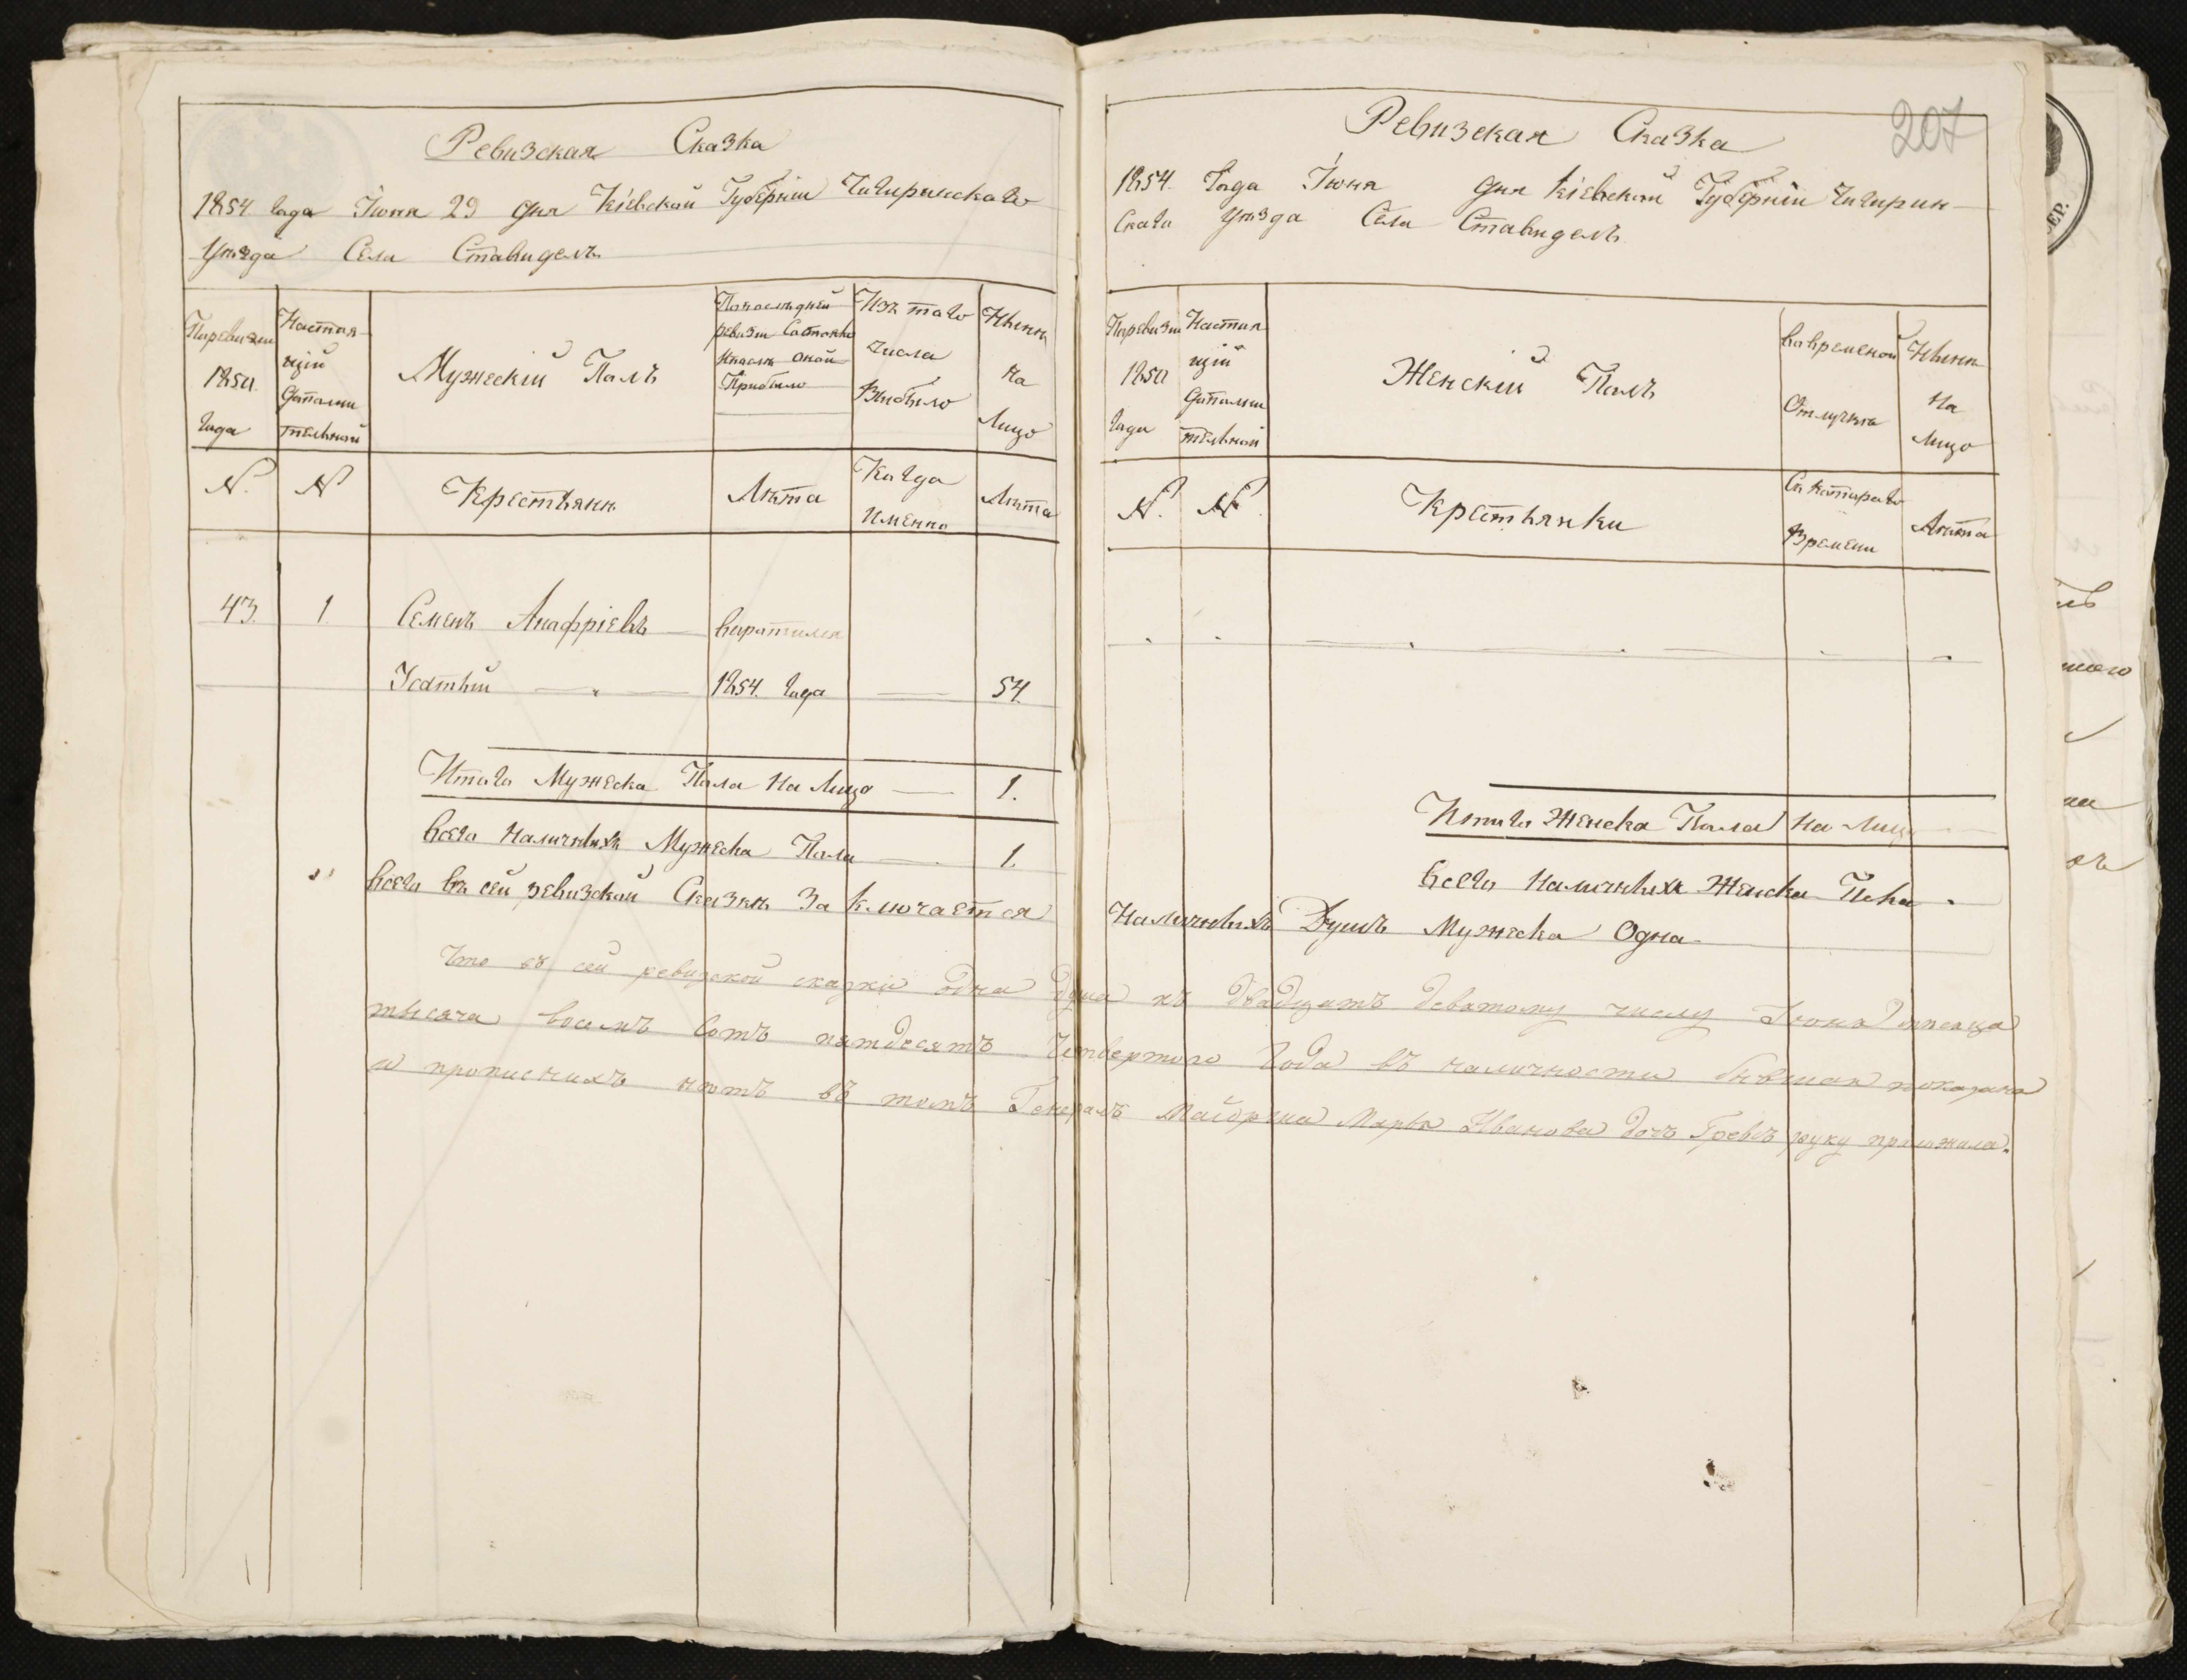 Ревизская Сказка
1854 года Іюня 29 дня Кіевской Губерніи Чигиринскаго
Уѣзда Села Ставиделъ
Поревизіи 1850 года
Настоя-
щій
дополни
тельной
Мужескій Полъ
Попоследней
ревизіи Состояло
Ипосле оной
Прибыло
Изъ того
числа
Выбыло
Нынѣ
на
Лицо
N.
N
Крестьянѣ
Лѣта
Когда
Именно
Лѣта
43. 1 Семенъ Анафріевъ воротился
Усатый 1854. года 54.
Итого Мужеска Пола На Лицо 1.
Всего Наличныхъ Мужеска Пола 1.
207
Ревизская Сказка
1854. Года Іюня дня Кіевской Губерніи Чигирин-
скаго Уѣзда Села Ставиделъ
Поревизіи
1850
года
Настоя
щій
дополни
тельной
Женскій Полъ
Вовременой
Отлучкѣ
Нынѣ
На
Лицо
N.
N.
Крестьянки
Съ котораго
Времени
Лѣта
Итого Женска Пола На Лицо
Всего Наличныхъ Женска Пола
Всего въ сей ревизской Сказкѣ Заключается Наличныхъ Душъ Мужеска Одна
Что въ сей ревизской сказкѣ одна душа къ двадцать девятому числу Іюня мѣсяца
тысяча восемь сотъ пятдесятъ Четвертого Года въ наличности бывшая показана
и прописныхъ нѣтъ въ томъ Генералъ Маіорша Марья Иванова дочь Гревсъ руку приложила.
ЕР.